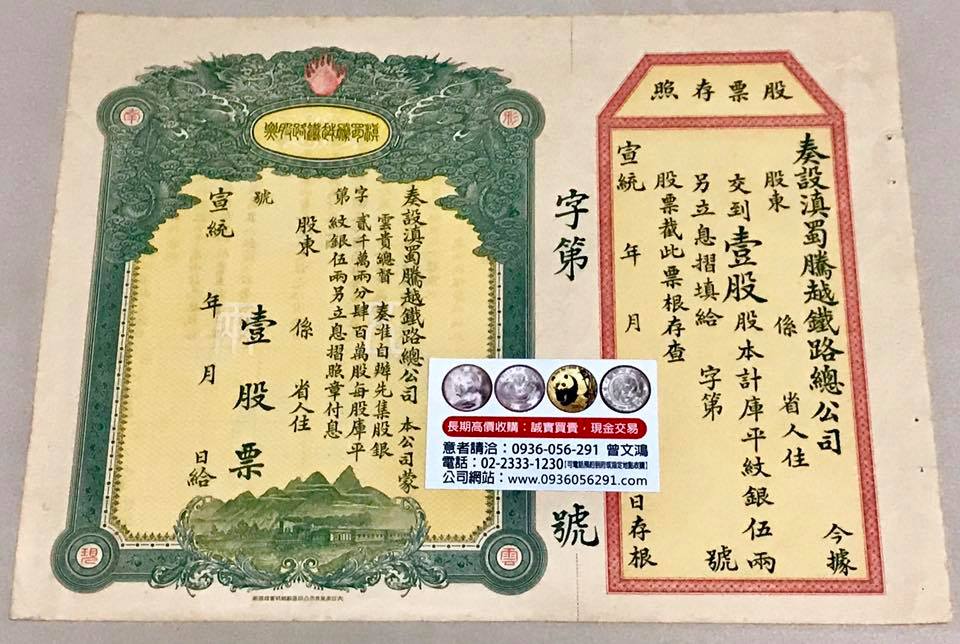 股票存照
奏設滇蜀騰越鐵路總公司 今據
股東 係 省人住
交到壹股股本計庫平紋銀伍兩
另立息摺填給 字第 號
股票截此票根存查
宣統 年 月 日存根
字第 號
滇蜀騰越鐵路股票
奏設滇蜀騰越鐵路總公司 本公司蒙
雲貴總督 奏准自辦先集股銀
貳千萬兩分肆百萬股每股庫平
紋銀伍兩另立息摺照章付息
字第 號
股東 係 省人住
壹股票
宣統 年 月 日給
長期高價收購：誠實買賣，現金交易
意者請洽：0936-056-291 曾文鴻
電話：02-2333-1230【可電話預約到府或指定地點收購】
公司網站：www.0936056291.com